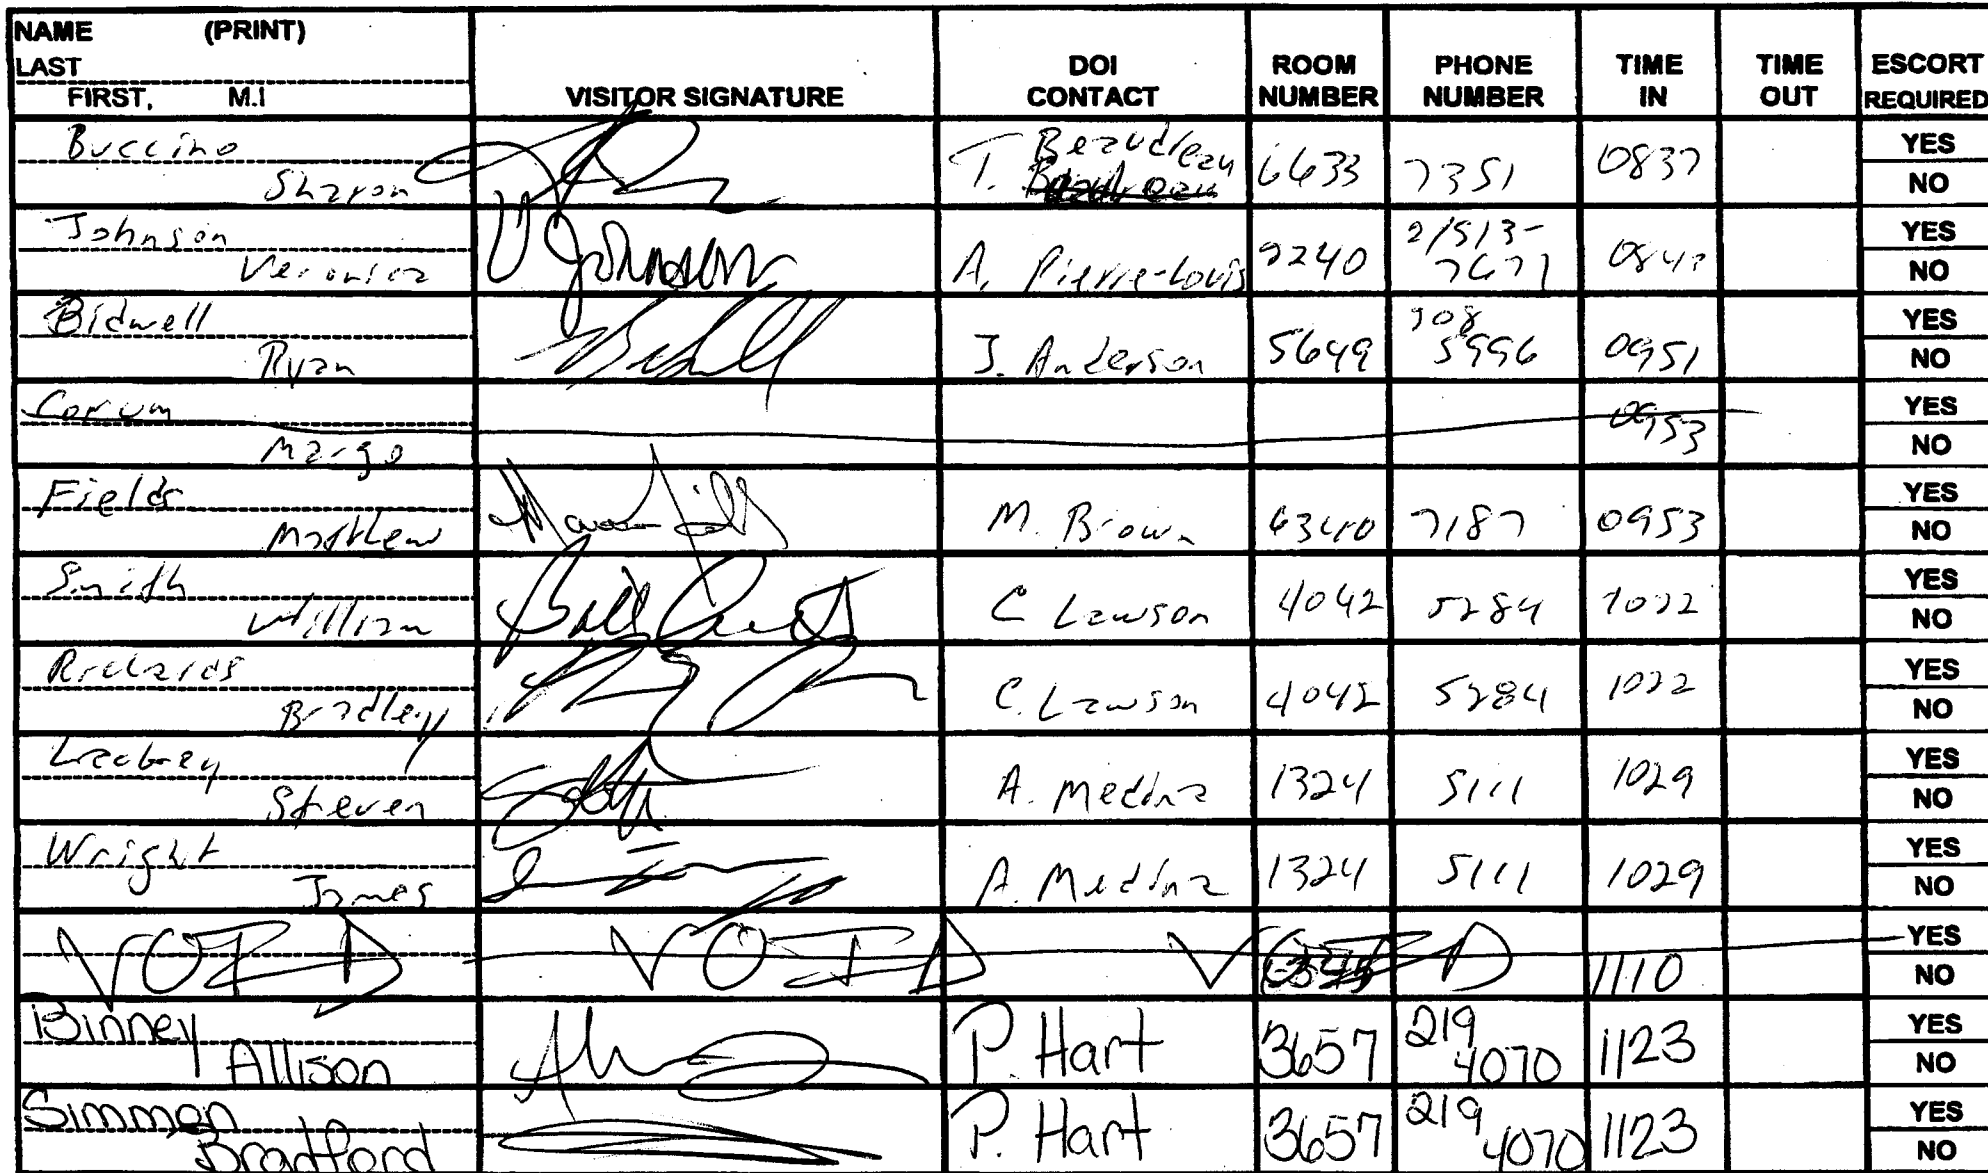 NAME (PRINT)
LAST
FIRST, M.I
VISITOR SIGNATURE
DOI CONTACT
ROOM NUMBER
PHONE NUMBER
TIME IN
TIME OUT
ESCORT REQUIRED
Buccino
Sharon
T. Beaudreau 6633 7351 0837
YES
NO
Johnson
Veronica
V Johnson
A. Pierre-Louis 9240 2/513-7671
YES
NO
Bidwell
Ryan
J. Anderson 5649 5996 0951
YES
NO
Corum
Margo
0953
YES
NO
Fields
Matthew
M. Brown 6340 7187 0953
YES
NO
Smith
William
C Lawson 4042 5284 1022
YES
NO
Richards
Bradley
C. Lawson 4042 5284 1022
YES
NO
Steven
A. Medina 1324 5111 1029
YES
NO
Wright
James
A. Medina 1324 5111 1029
YES
NO
VOID VOID VOID 1110
YES
NO
Binney
Allison
P. Hart 3657 219 4070 1123
YES
NO
Simmon
Bradford
P. Hart 3657 219 4070 1123
YES
NO